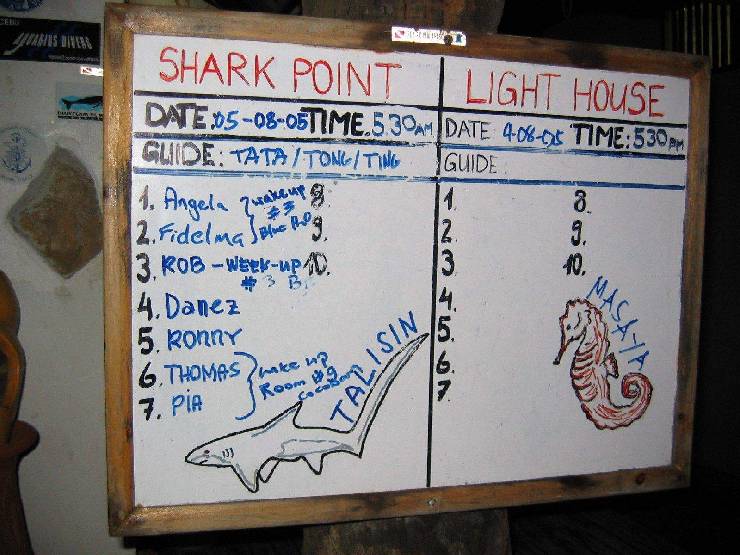 CEBU
AQUARIUS DIVERS
SHARK POINT
DATE: 05-08-05 TIME. 5.30AM
GUIDE: TATA / TONG / TING
1. Angela wake up 8.
#3
2. Fidelma Blue 9.
3. ROB - WEEK-UP 10.
# 3 B
4. Danez
5. RONNY
6. THOMAS wake up
Room #9
7. PIA
TALISIN
LIGHT HOUSE
DATE 4-08-05 TIME: 530 pm
GUIDE
1. 8.
2. 9.
3. 10.
4.
5.
6.
7.
MASAYA